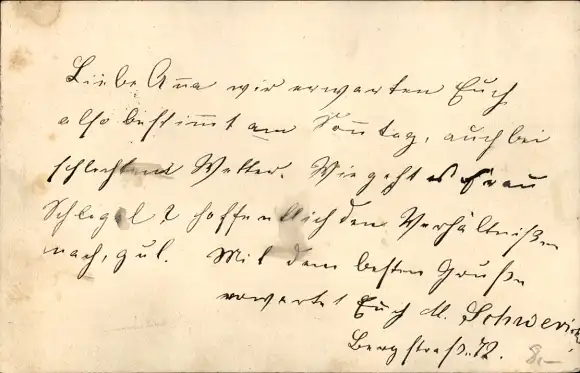 Liebe Anna wir erwarten Euch
also bestimmt am Sonntag, auch bei
schlechtem Wetter. Wie geht es Frau
Schlegel? hoffentlich den Verhältnißen
nach, gut. Mit dem besten Gruße
erwartet Euch M. Schwerin
Bergstraß. 72.
8.–